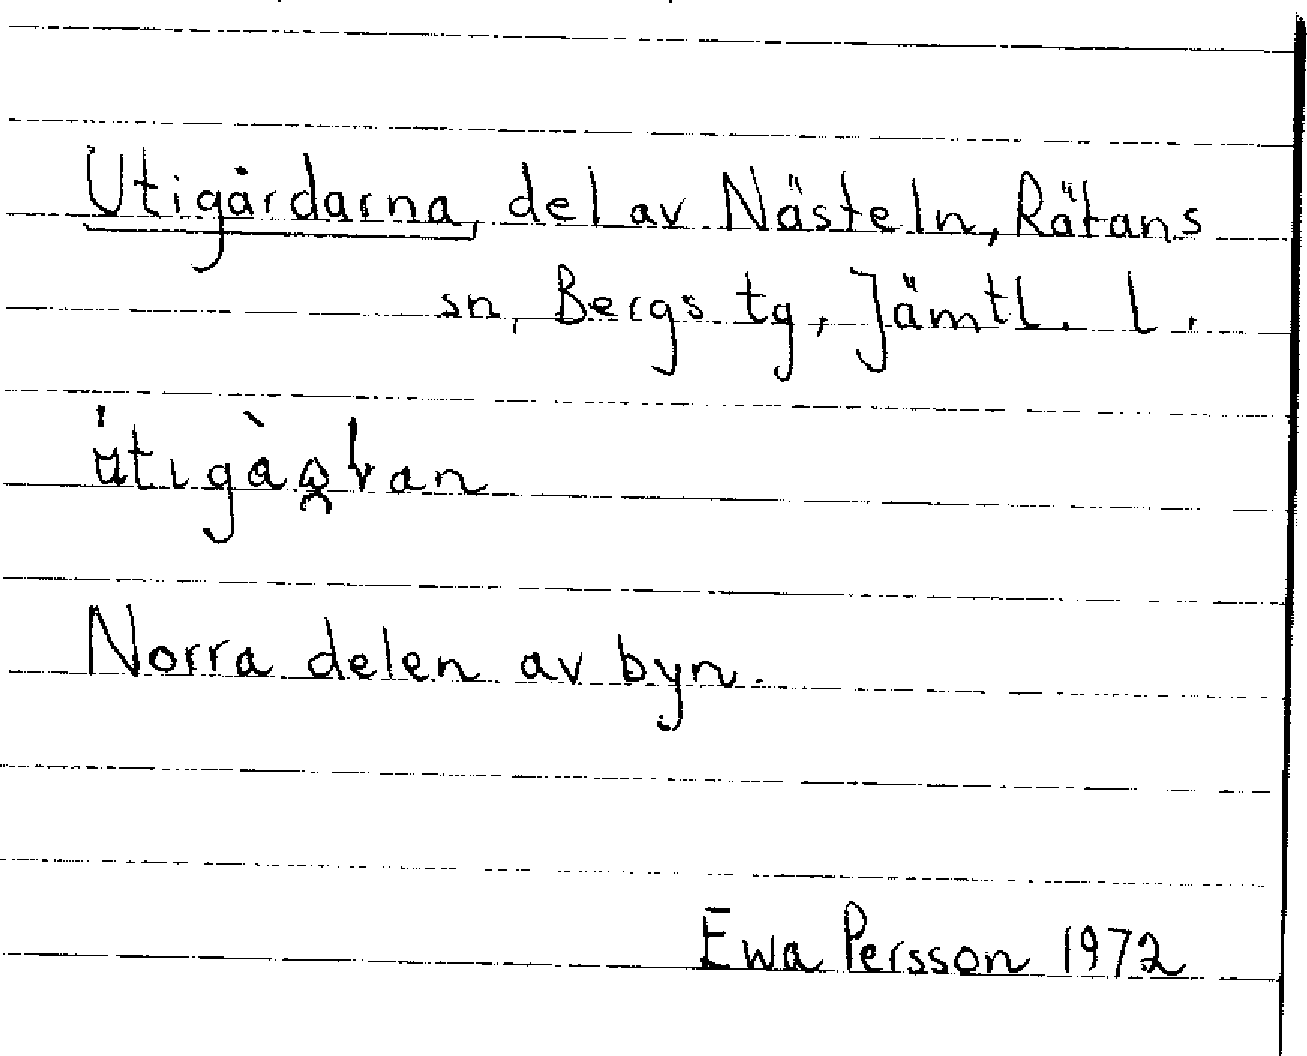 Utigårdarna, del av Nästeln, Rätans
sn, Bergs tg, Jämtl. l.
Norra delen av byn.
Ewa Persson 1972